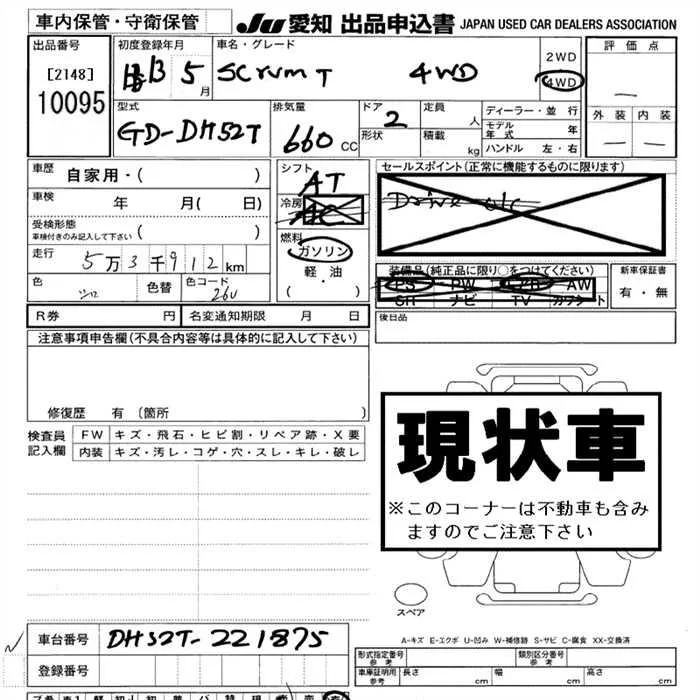 車内保管・守衛保管
JU 愛知 出品申込書 JAPAN USED CAR DEALERS ASSOCIATION
出品番号 初度登録年月 車名・グレード 2WD 評価点
[2148] H13 5月 SCrum T 4WD 4WD
10095 型式 排気量 ドア 定員 人 ディーラー・並行 外装 内装
GD-DH52T 660 CC 2 形状 積載 kg モデル年式 年
ハンドル 左・右
車歴 自家用・( ) シフト AT セールスポイント(正常に機能するものに限ります)
車検 年 月( 日) 冷房 AC Drive
受検形態 車検付きのみ記入して下さい ( ) 燃料 ガソリン
走行 5万3千912km 軽・油 装備品(純正品に限り○をつけてください) 新車保証書
色 シロ 色替 色コード 26U ( ) PS PW AB AW 有・無
SR ナビ TV カワシート
R券 円 名変通知期限 月 日 後日品
注意事項申告欄(不具合内容等は具体的に記入して下さい)
修復歴 有 (箇所 )
検査員 FW キズ・飛石・ヒビ割・リペア跡・X要
記入欄 内装 キズ・汚レ・コゲ・穴・スレ・キレ・破レ
現状車
※このコーナーは不動車も含み
ますのでご注意下さい
スペア
A-キズ E-エクボ U-凹み W-補修跡 S-サビ C-腐食 XX-交換済
車台番号 DH52T-221875
登録番号
形式指定番号 参考 類別区分番号 参考
車庫証明用 参考 長さ cm 幅 cm 高さ cm